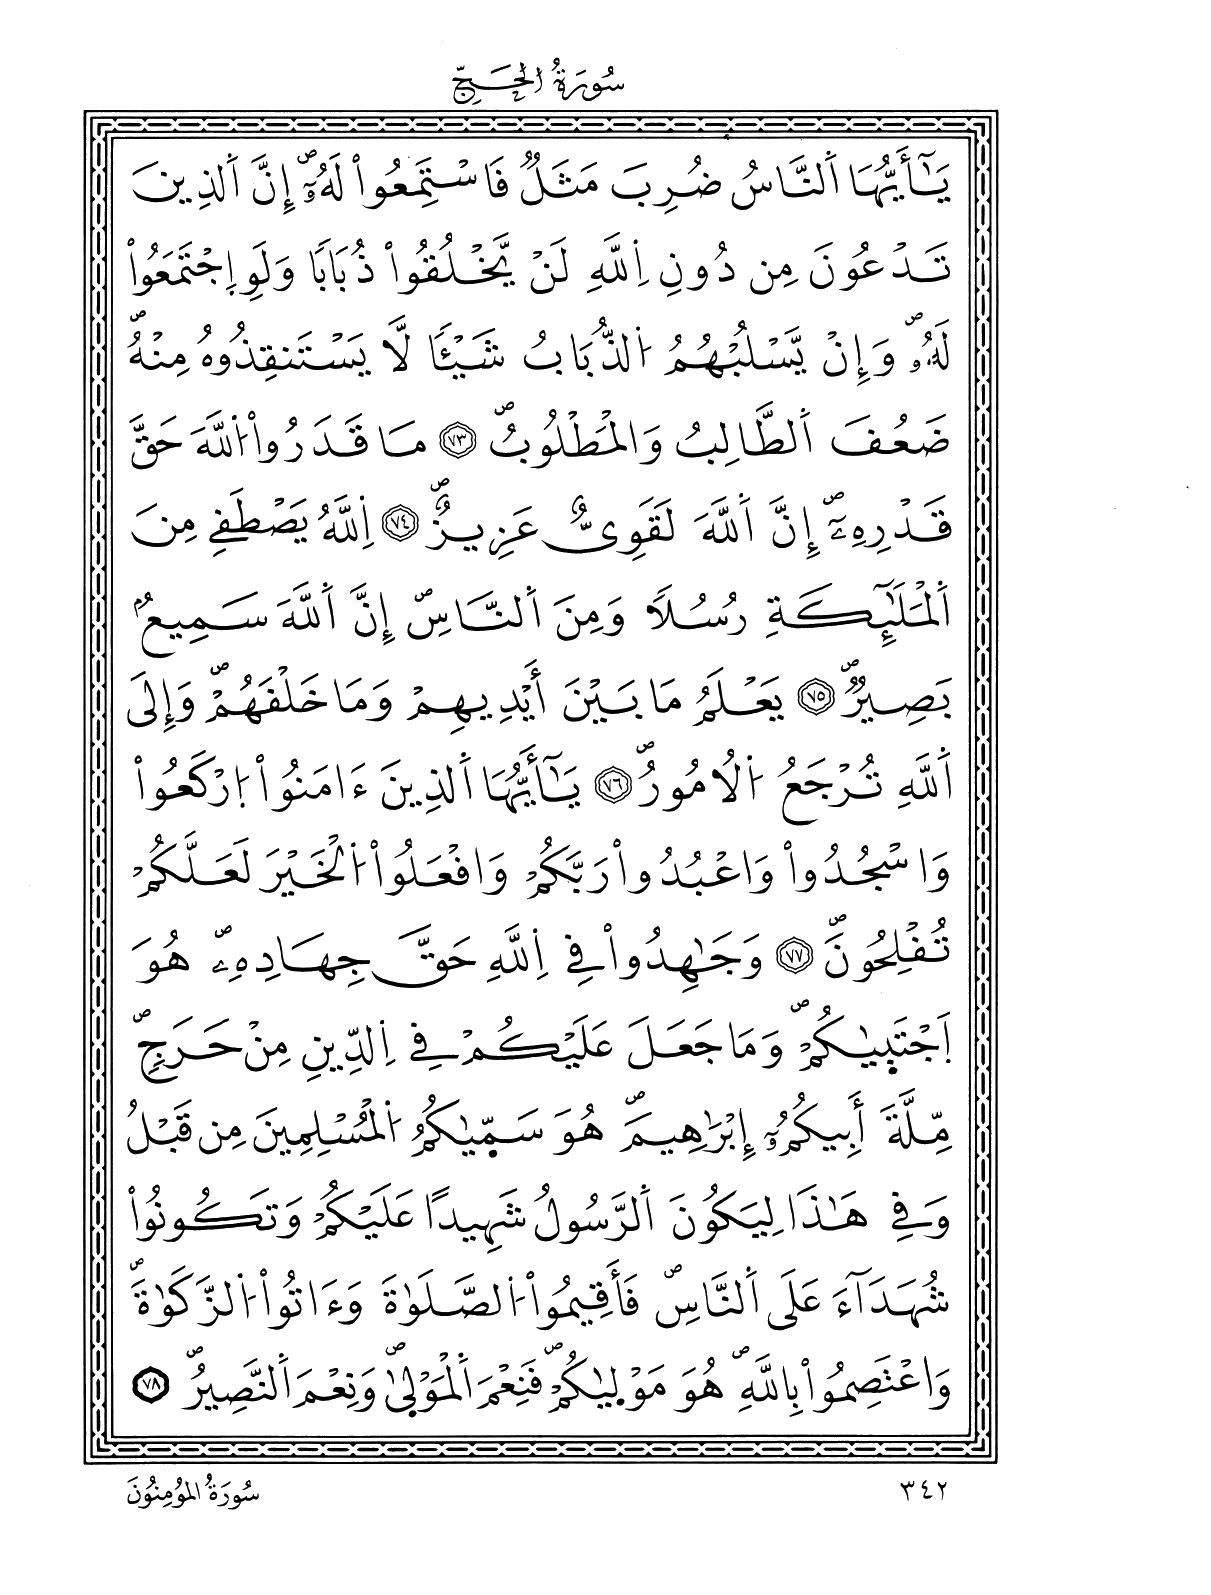 سُورَةُ الحَجِّ
يَٰٓأَيُّهَا اَ۬لنَّاسُ ضُرِبَ مَثَلٞ فَاسْتَمِعُواْ لَهُۥٓۖ إِنَّ اَ۬لذِينَ
تَدْعُونَ مِن دُونِ اِ۬للَّهِ لَنْ يَّخْلُقُواْ ذُبَابٗا وَلَوِ اِ۪جْتَمَعُواْ
لَهُۥۖ وَإِنْ يَّسْلُبْهُمُ اُ۬لذُّبَابُ شَيْـٔٗا لَّا يَسْتَنقِذُوهُ مِنْهُۖ
ضَعُفَ اَ۬لطَّالِبُ وَالْمَطْلُوبُۖ ٧٣ مَا قَدَرُواْ اُ۬للَّهَ حَقَّ
قَدْرِهِۦٓۖ إِنَّ اَ۬للَّهَ لَقَوِيٌّ عَزِيزٌۖ ٧٤ اِ۬للَّهُ يَصْطَفِے مِنَ
اَ۬لْمَلَٰٓئِكَةِ رُسُلٗا وَمِنَ اَ۬لنَّاسِۖ إِنَّ اَ۬للَّهَ سَمِيعُۢ
بَصِيرٞۖ ٧٥ يَعْلَمُ مَا بَيْنَ أَيْدِيهِمْ وَمَا خَلْفَهُمْۖ وَإِلَى
اَ۬للَّهِ تُرْجَعُ اُ۬لُامُورُۖ ٧٦ يَٰٓأَيُّهَا اَ۬لذِينَ ءَامَنُواْ اُ۪رْكَعُواْ
وَاسْجُدُواْ وَاعْبُدُواْ رَبَّكُمْ وَافْعَلُواْ اُ۬لْخَيْرَ لَعَلَّكُمْ
تُفْلِحُونَۖ ٧٧ وَجَٰهِدُواْ فِے اِ۬للَّهِ حَقَّ جِهَادِهِۦۖ هُوَ
اَ۪جْتَبَيٰكُمْۖ وَمَا جَعَلَ عَلَيْكُمْ فِے اِ۬لدِّينِ مِنْ حَرَجٖۖ
مِّلَّةَ أَبِيكُمُۥٓ إِبْرَٰهِيمَۖ هُوَ سَمّ۪يٰكُمُ اُ۬لْمُسْلِمِينَ مِن قَبْلُ
وَفِے هَٰذَا لِيَكُونَ اَ۬لرَّسُولُ شَهِيداً عَلَيْكُمْ وَتَكُونُواْ
شُهَدَآءَ عَلَى اَ۬لنَّاسِۖ فَأَقِيمُواْ اُ۬لصَّلَوٰةَ وَءَاتُواْ اُ۬لزَّكَوٰةَۖ
وَاعْتَصِمُواْ بِاللَّهِۖ هُوَ مَوْل۪يٰكُمْۖ فَنِعْمَ اَ۬لْمَوْل۪يٰۖ وَنِعْمَ اَ۬لنَّصِيرُۖ ٧٨
٣٤٢
سُورَةُ المُؤْمِنُونَ